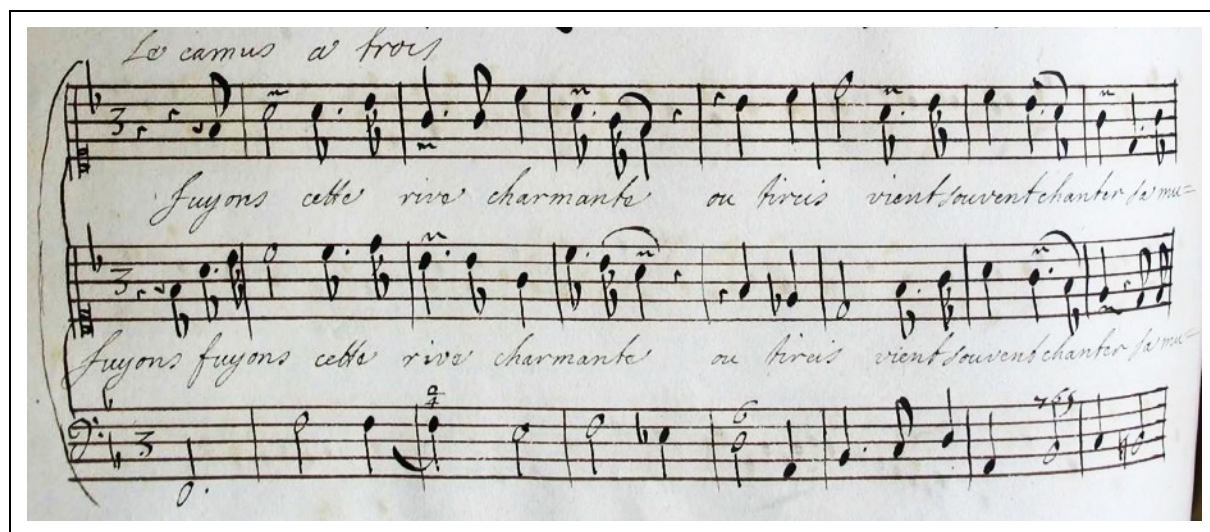 Le camus a trois
3
fuyons cette rive charmante ou tircis vient souvent chanter sa mu=
3
fuyons fuyons cette rive charmante ou tircis vient souvent chanter sa mu=
6 765
3